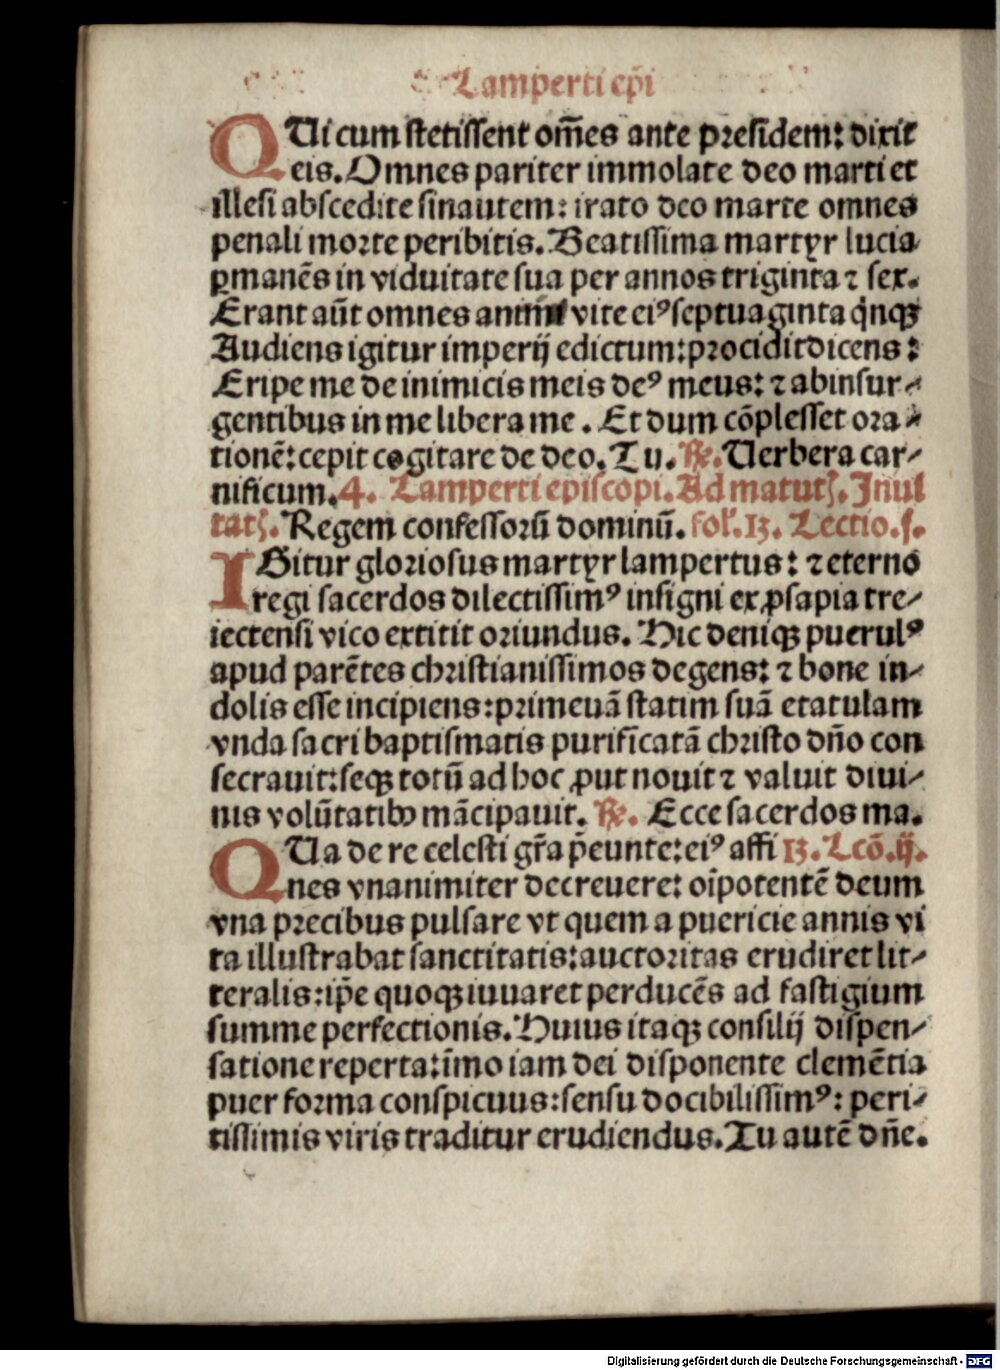 Lamperti ep̄i
QUi cum stetissent om̄es ante presidem: dixit
eis. Omnes pariter immolate deo marti et
illesi abscedite sinautem: irato deo marte omnes
penali morte peribitis. Beatissima martyr lucia
ꝑmanēs in viduitate sua per annos triginta ⁊ sex.
Erant aūt omnes anni vite eiꝰ septuaginta q̇nqꝫ
Audiens igitur imperij edictum: prociditdicens:
Eripe me de inimicis meis deꝰ meus: ⁊ abinsur⸗
gentibus in me libera me. Et dum cōplesset ora⸗
tionē: cepit cogitare de deo. Tu. ℞. Uerbera car⸗
nificum. 4. Lamperti episcopi. Ad matutꝭ. Inui
tatꝭ. Regem confessorū dominū. fol. 13. Lectio. j.
IGitur gloriosus martyr lampertus: ⁊ eterno
regi sacerdos dilectissimꝰ insigni ex ꝓsapia tre⸗
iectensi vico extitit oriundus. Hic deniqꝫ puerulꝰ
apud parētes christianissimos degens: ⁊ bone in⸗
dolis esse incipiens: primeuā statim suā etatulam
vnda sacri baptismatis purificatā christo dn̄o con
secrauit: seqꝫ totū ad hoc ꝓut nouit ⁊ valuit diui⸗
nis volūtatibꝰ mācipauit. ℞. Ecce sacerdos ma.
QUa de re celesti gr̄a p̄eunte: eiꝰ affi 13. Lcō. ij.
nes vnanimiter decreuere: oīpotentē deum
vna precibus pulsare vt quem a puericie annis vi
ta illustrabat sanctitatis: auctoritas erudiret lit⸗
teralis: ip̄e quoqꝫ iuuaret perducēs ad fastigium
summe perfectionis. Huius itaqꝫ consilij dispen⸗
satione reperta: īmo iam dei disponente clemētia
puer forma conspicuus: sensu docibilissimꝰ: peri⸗
tissimis viris traditur erudiendus. Tu autē dn̄e.
Digitalisierung gefördert durch die Deutsche Forschungsgemeinschaft - DFG